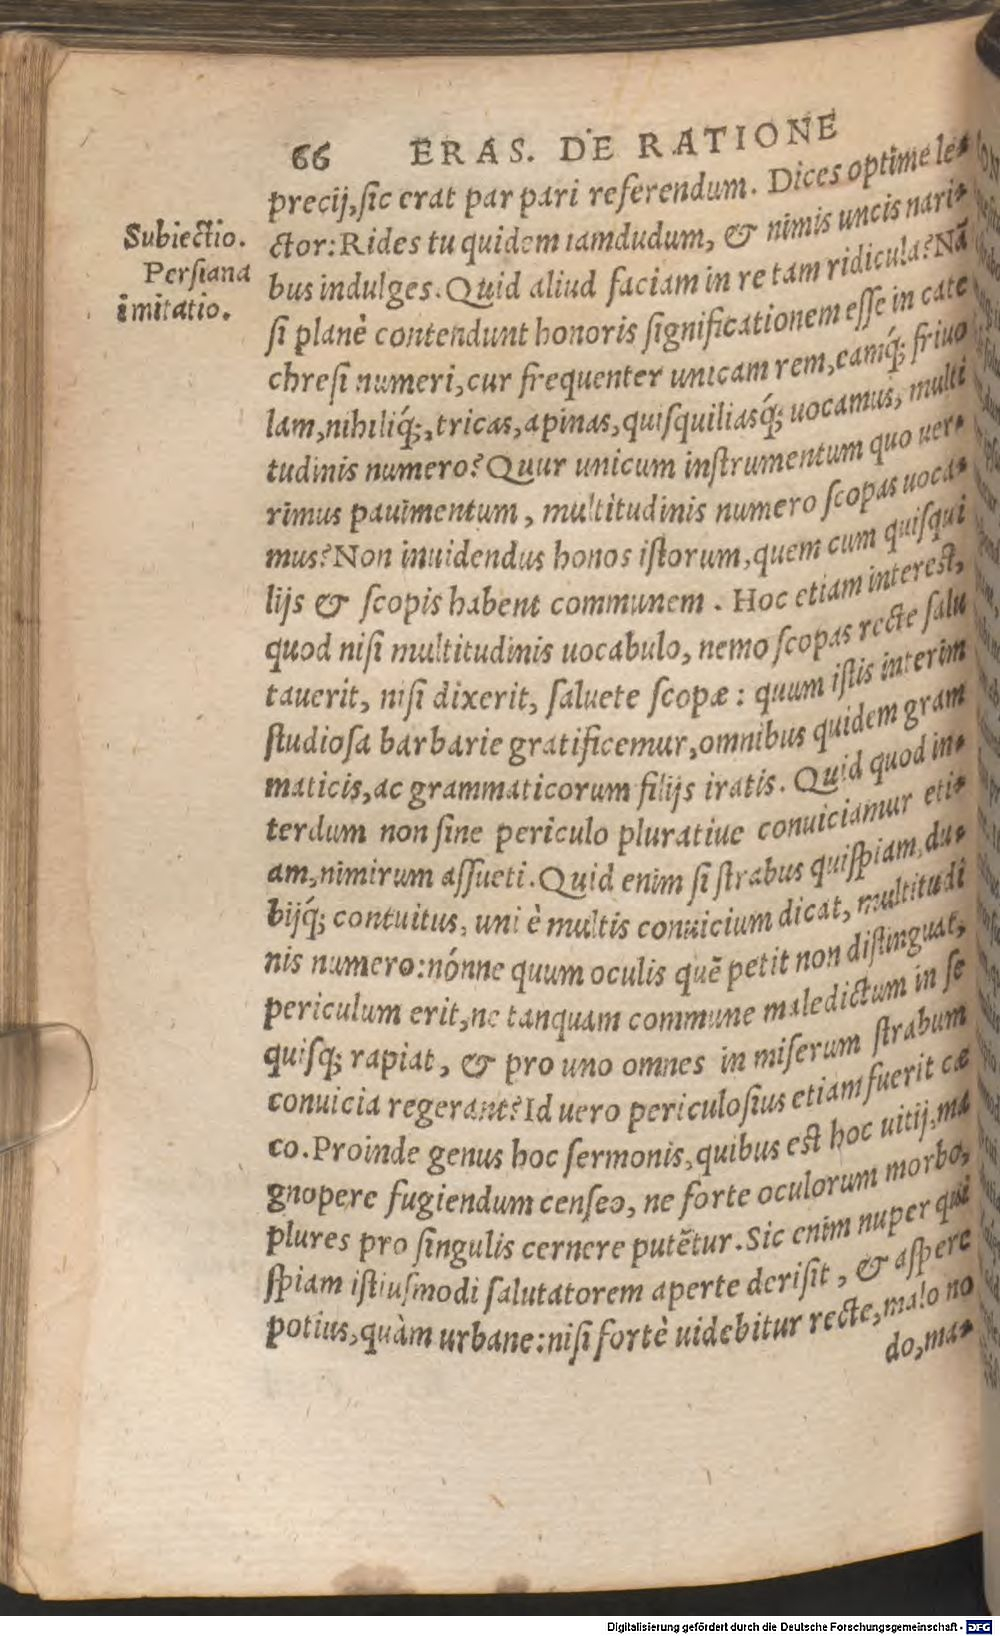 66 ERAS. DE RATIONE
precij, sic erat par pari referendum. Dices optime le-
Subiectio.
ctor: Rides tu quidem iamdudum, & nimis uncis nari-
Persiana
imitatio.
bus indulges. Quid aliud faciam in re tam ridicula? Nā
si planè contendunt honoris significationem esse in cate
chresi numeri, cur frequenter unicam rem, eamq́; friuo
lam, nihiliq́;, tricas, apinas, quisquiliasq́; uocamus, multi
tudinis numero? Quur unicum instrumentum quo uer-
rimus pauimentum, multitudinis numero scopas uoca-
mus? Non inuidendus honos istorum, quem cum quisqui
lijs & scopis habent communem. Hoc etiam interest,
quod nisi multitudinis uocabulo, nemo scopas recte salu
tauerit, nisi dixerit, saluete scopæ: quum istis interim
studiosa barbarie gratificemur, omnibus quidem gram
maticis, ac grammaticorum filijs iratis. Quid quod in-
terdum non sine periculo pluratiue conuiciamur eti-
am, nimirum assueti. Quid enim si strabus quispiam, du-
bijq́; contuitus, uni è multis conuicium dicat, multitudi
nis numero: nónne quum oculis quē petit non distinguat,
periculum erit, ne tanquam commune maledictum in se
quisq; rapiat, & pro uno omnes in miserum strabum
conuicia regerant? Id uero periculosius etiam fuerit cæ
co. Proinde genus hoc sermonis, quibus est hoc uitij, ma
gnopere fugiendum censeo, ne forte oculorum morbo,
plures pro singulis cernere putētur. Sic enim nuper qui
spiam istiusmodi salutatorem aperte derisit, & aspere
potius, quàm urbane: nisi fortè uidebitur recte, malo no
do, ma-
Digitalisierung gefördert durch die Deutsche Forschungsgemeinschaft - DFG